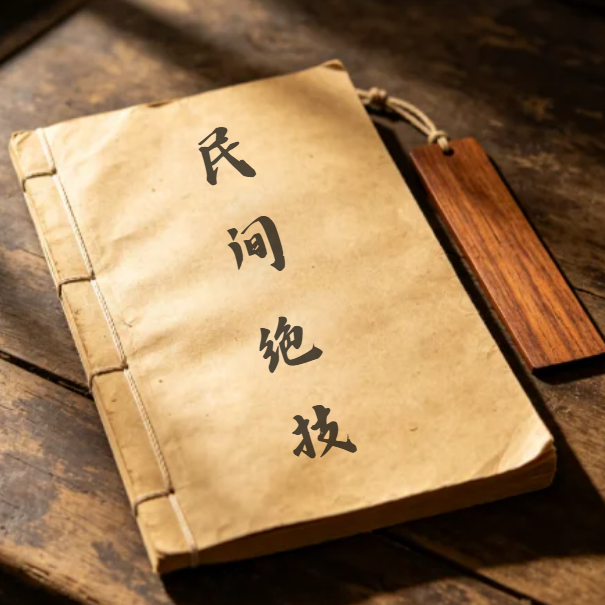 民间绝技